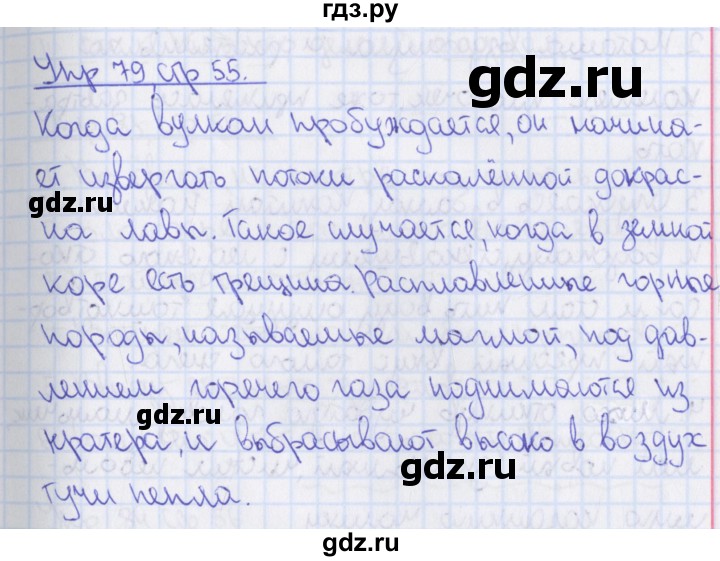 гдз.ру
Упр 79 стр 55.
gdz.ru
Когда вулкан пробуждается, он начина-
ет извергать потоки раскалённой докрас-
gdz.ru
на лавы. Такое случается, когда в земной
коре есть трещина. Расплавленные горные
породы, называемые магмой, под дав-
лением горячего газа поднимаются из
gdz.ru
кратера, и выбрасывают высоко в воздух
gdz.ru
тучи пепла.
gdz.ru